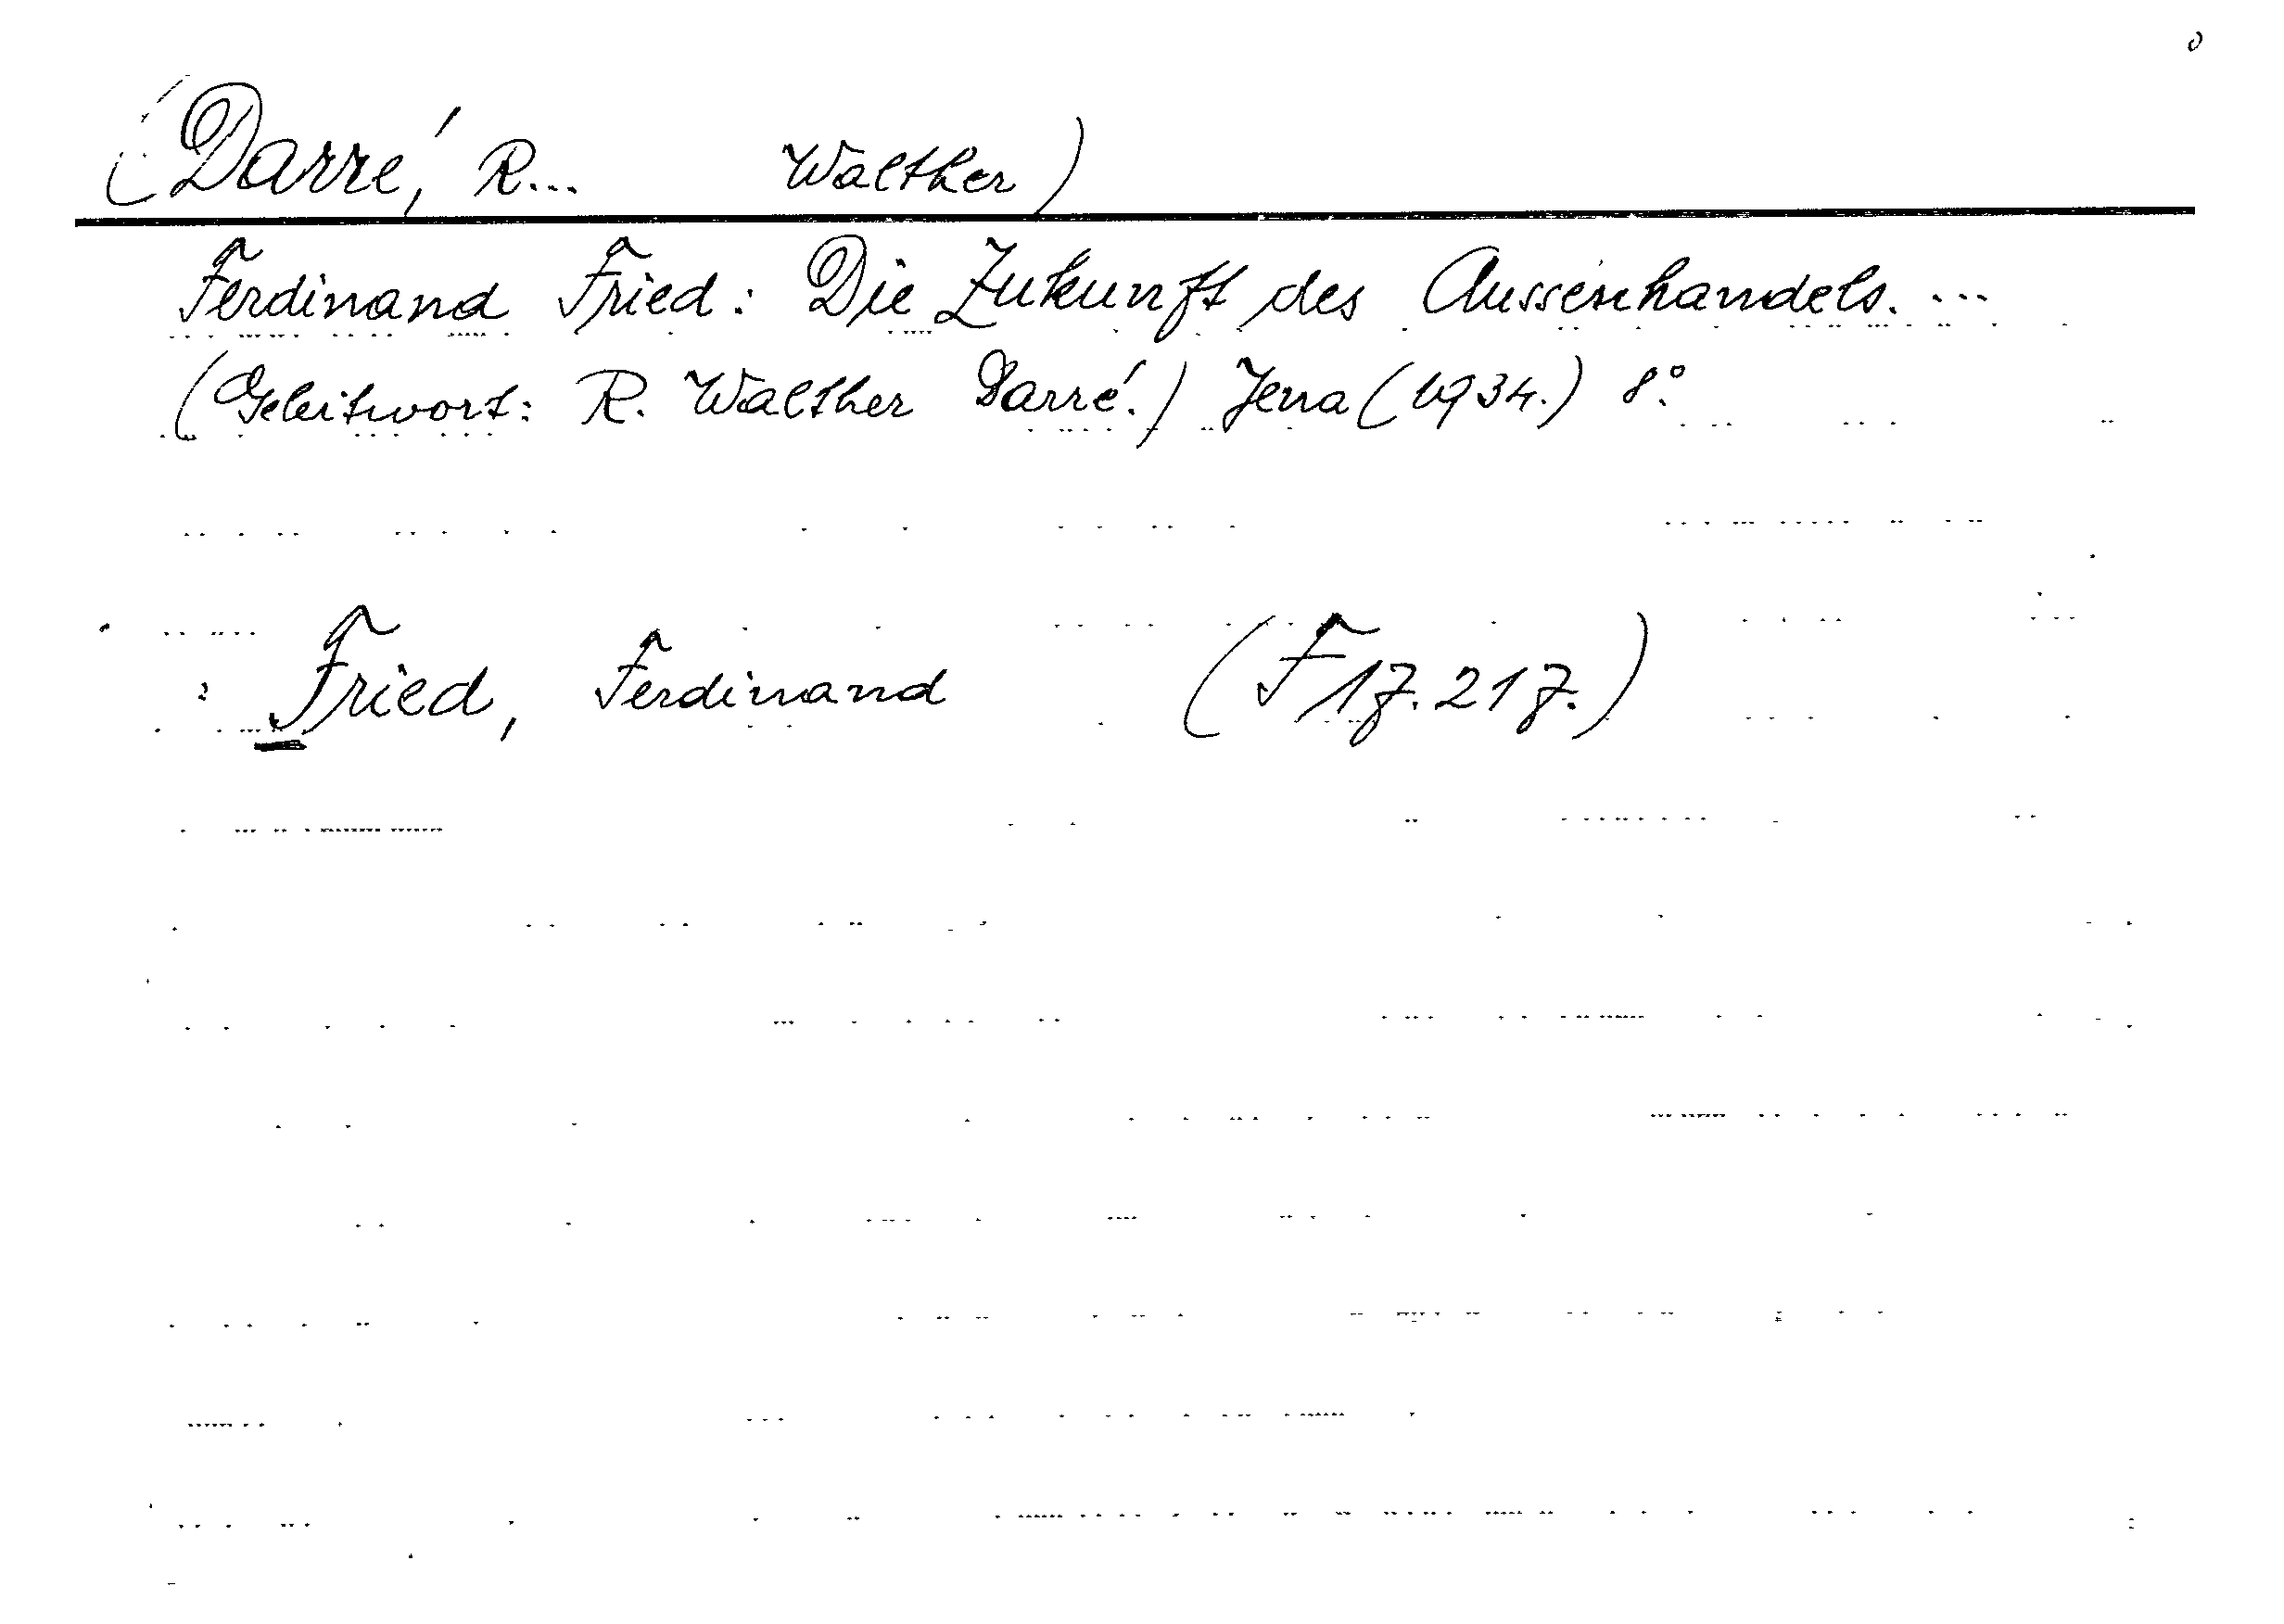 (Darré, R... Walther)
Ferdinand Fried: Die Zukunft des Aussenhandels. ...
(Geleitwort: R. Walther Darré.) Jena (1934.) 8°.
Fried, Ferdinand (F 17.217.)